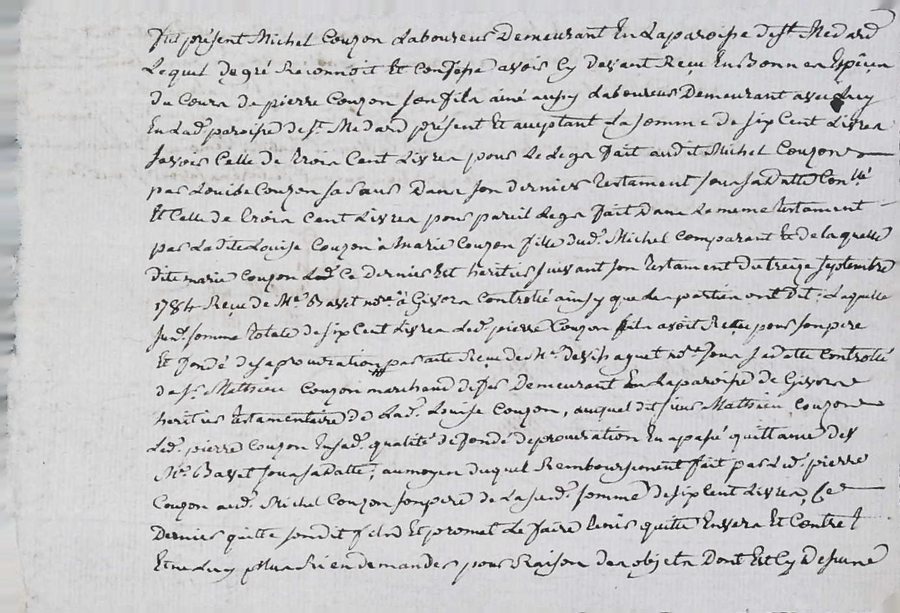 fut présent Michel Couzon Laboureur Demeurant En Laparoisse de St. Medard
Lequel de gré Reconnoit Et Confesse avoir Cy devant Reçu En Bonnes Espèces
du Cours de pierre Couzon son fils ainé aussy Laboureur Demeurant avec luy
En Lad. paroisse de St. Medard présent Et acceptant La somme de six Cent Livres
Savoir Celle de trois Cent Livres pour Le Legs fait audit Michel Couzon
par Louise Couzon sa sœur Dans son dernier Testament sous sa datte Con.llé
Et Celle de trois Cent Livres pour pareil Legs fait Dans Le meme testament
par Ladite Louise Couzon à Marie Couzon fille dud. Michel Comparant Et de laquelle
dite marie Couzon Led. Ce dernier Est heritier suivant son Testament du treize septembre
1784 Reçu de Me. Bavet nore. à Givors Controllé ainsy que les parties ont dit; Laquelle
susd. somme totale de six Cent Livres Led. pierre Couzon fils avoit Reçu pour son pere
Et fondé de sa procuration par acte Reçu de Me. nore. sous sa datte Controllé
de Sr. Mathieu Couzon marchand de fer Demeurant En Laparoisse de Givors
heritier testamentaire de Lad. Louise Couzon, auquel dit sieur Mathieu Couzon
Led. pierre Couzon En sad. qualité de fondé de procuration En a passé quittance devt
Me. Bavet sous sa datte; au moyen duquel Remboursement fait par Led. pierre
Couzon aud. Michel Couzon son pere de La susd. somme de six Cent Livres, Ce
Dernier quitte son dit fils Et promet Le faire tenir quitte Envers Et Contre ts
Et ne Luy plus Rien demander pour Raison des objets Dont Est Cy Dessus